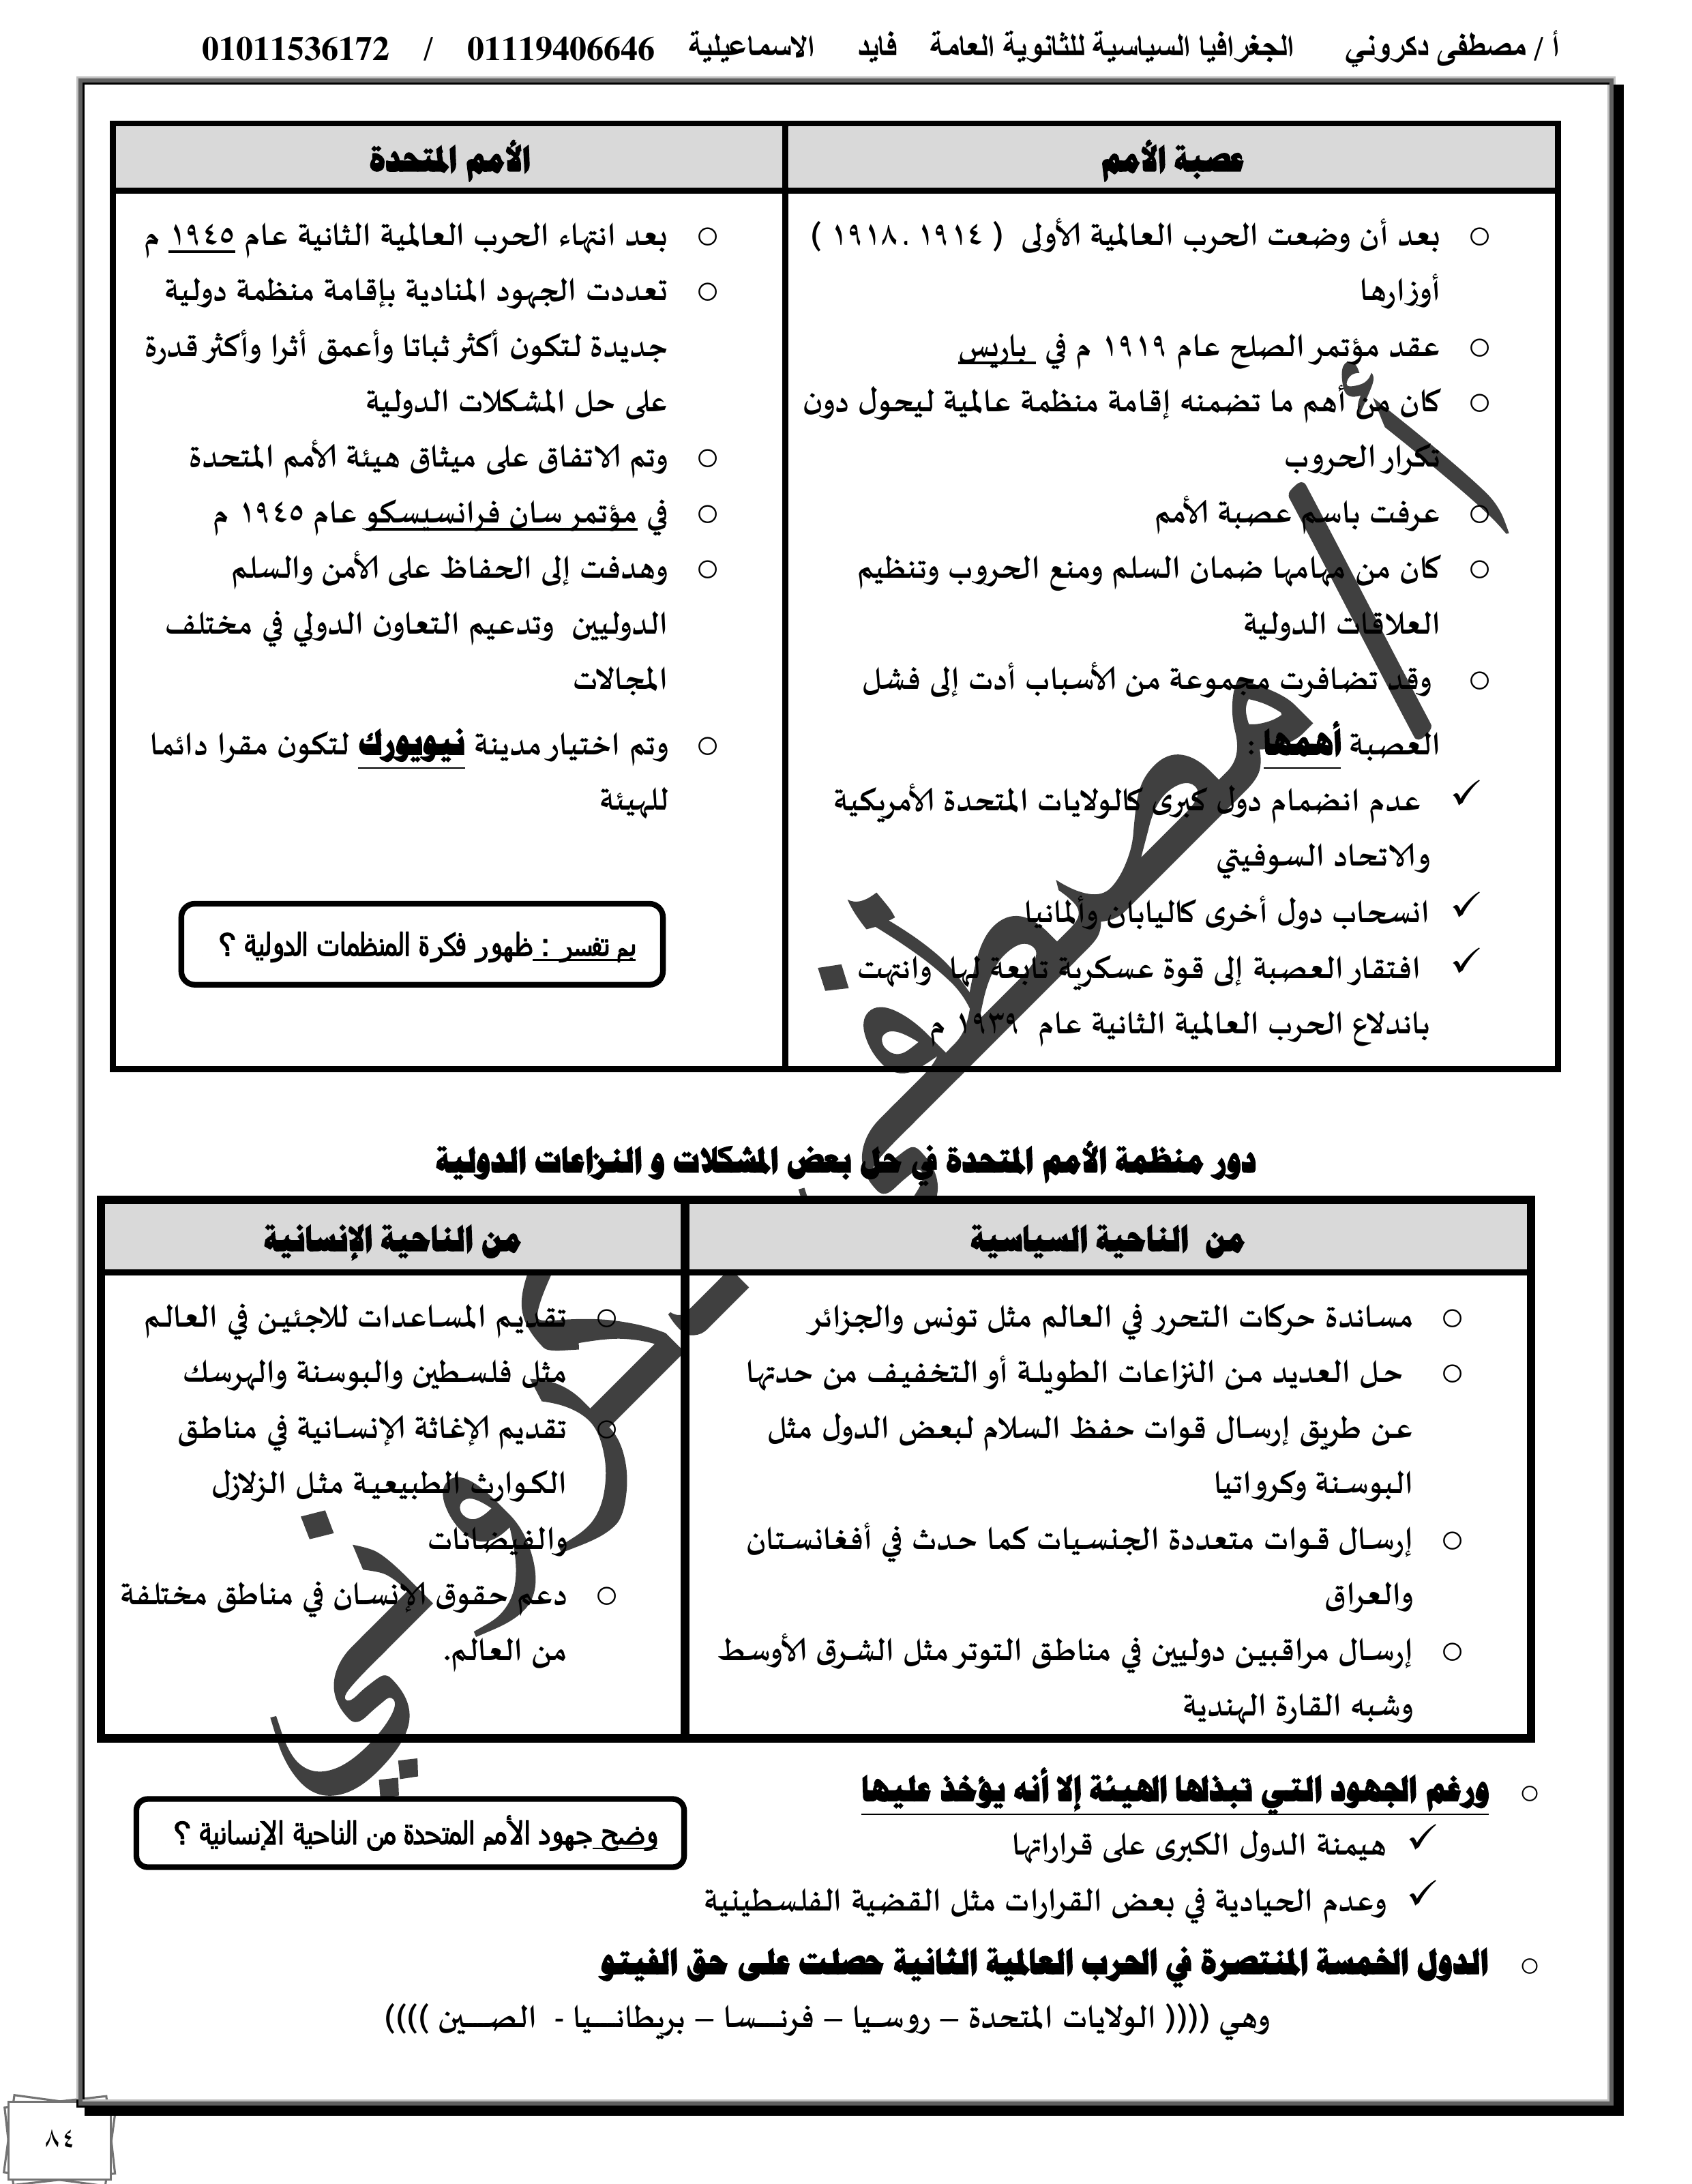 أ / مصطفى دكروني الجغرافيا السياسية للثانوية العامة فايد الاسماعيلية 01119406646 / 01011536172
عصبة الأمم
بعد أن وضعت الحرب العالمية الأولى ( ١٩١٤ . ١٩١٨ )
أوزارها
عقد مؤتمر الصلح عام ١٩١٩ م في باريس
كان من أهم ما تضمنه إقامة منظمة عالمية ليحول دون
تكرار الحروب
عرفت باسم عصبة الأمم
كان من مهامها ضمان السلم ومنع الحروب وتنظيم
العلاقات الدولية
وقد تضافرت مجموعة من الأسباب أدت إلى فشل
العصبة أهمها :
عدم انضمام دول كبرى كالولايات المتحدة الأمريكية
والاتحاد السوفيتي
انسحاب دول أخرى كاليابان وألمانيا
افتقار العصبة إلى قوة عسكرية تابعة لها وانتهت
باندلاع الحرب العالمية الثانية عام ١٩٣٩ م
الأمم المتحدة
بعد انتهاء الحرب العالمية الثانية عام ١٩٤٥ م
تعددت الجهود المنادية بإقامة منظمة دولية
جديدة لتكون أكثر ثباتا وأعمق أثرا وأكثر قدرة
على حل المشكلات الدولية
وتم الاتفاق على ميثاق هيئة الأمم المتحدة
في مؤتمر سان فرانسيسكو عام ١٩٤٥ م
وهدفت إلى الحفاظ على الأمن والسلم
الدوليين وتدعيم التعاون الدولي في مختلف
المجالات
وتم اختيار مدينة نيويورك لتكون مقرا دائما
للهيئة
بم تفسر : ظهور فكرة المنظمات الدولية ؟
دور منظمة الأمم المتحدة في حل بعض المشكلات و النزاعات الدولية
من الناحية السياسية
مساندة حركات التحرر في العالم مثل تونس والجزائر
حل العديد من النزاعات الطويلة أو التخفيف من حدتها
عن طريق إرسال قوات حفظ السلام لبعض الدول مثل
البوسنة وكرواتيا
إرسال قوات متعددة الجنسيات كما حدث في أفغانستان
والعراق
إرسال مراقبين دوليين في مناطق التوتر مثل الشرق الأوسط
وشبه القارة الهندية
من الناحية الإنسانية
تقديم المساعدات للاجئين في العالم
مثل فلسطين والبوسنة والهرسك
تقديم الإغاثة الإنسانية في مناطق
الكوارث الطبيعية مثل الزلازل
والفيضانات
دعم حقوق الإنسان في مناطق مختلفة
من العالم.
ورغم الجهود التي تبذلها الهيئة إلا أنه يؤخذ عليها
هيمنة الدول الكبرى على قراراتها
وعدم الحيادية في بعض القرارات مثل القضية الفلسطينية
وضح جهود الأمم المتحدة من الناحية الإنسانية ؟
الدول الخمسة المنتصرة في الحرب العالمية الثانية حصلت على حق الفيتو
وهي (((( الولايات المتحدة – روسيا – فرنسا – بريطانيا - الصين ))))
٨٤
أ / مصطفى دكروني